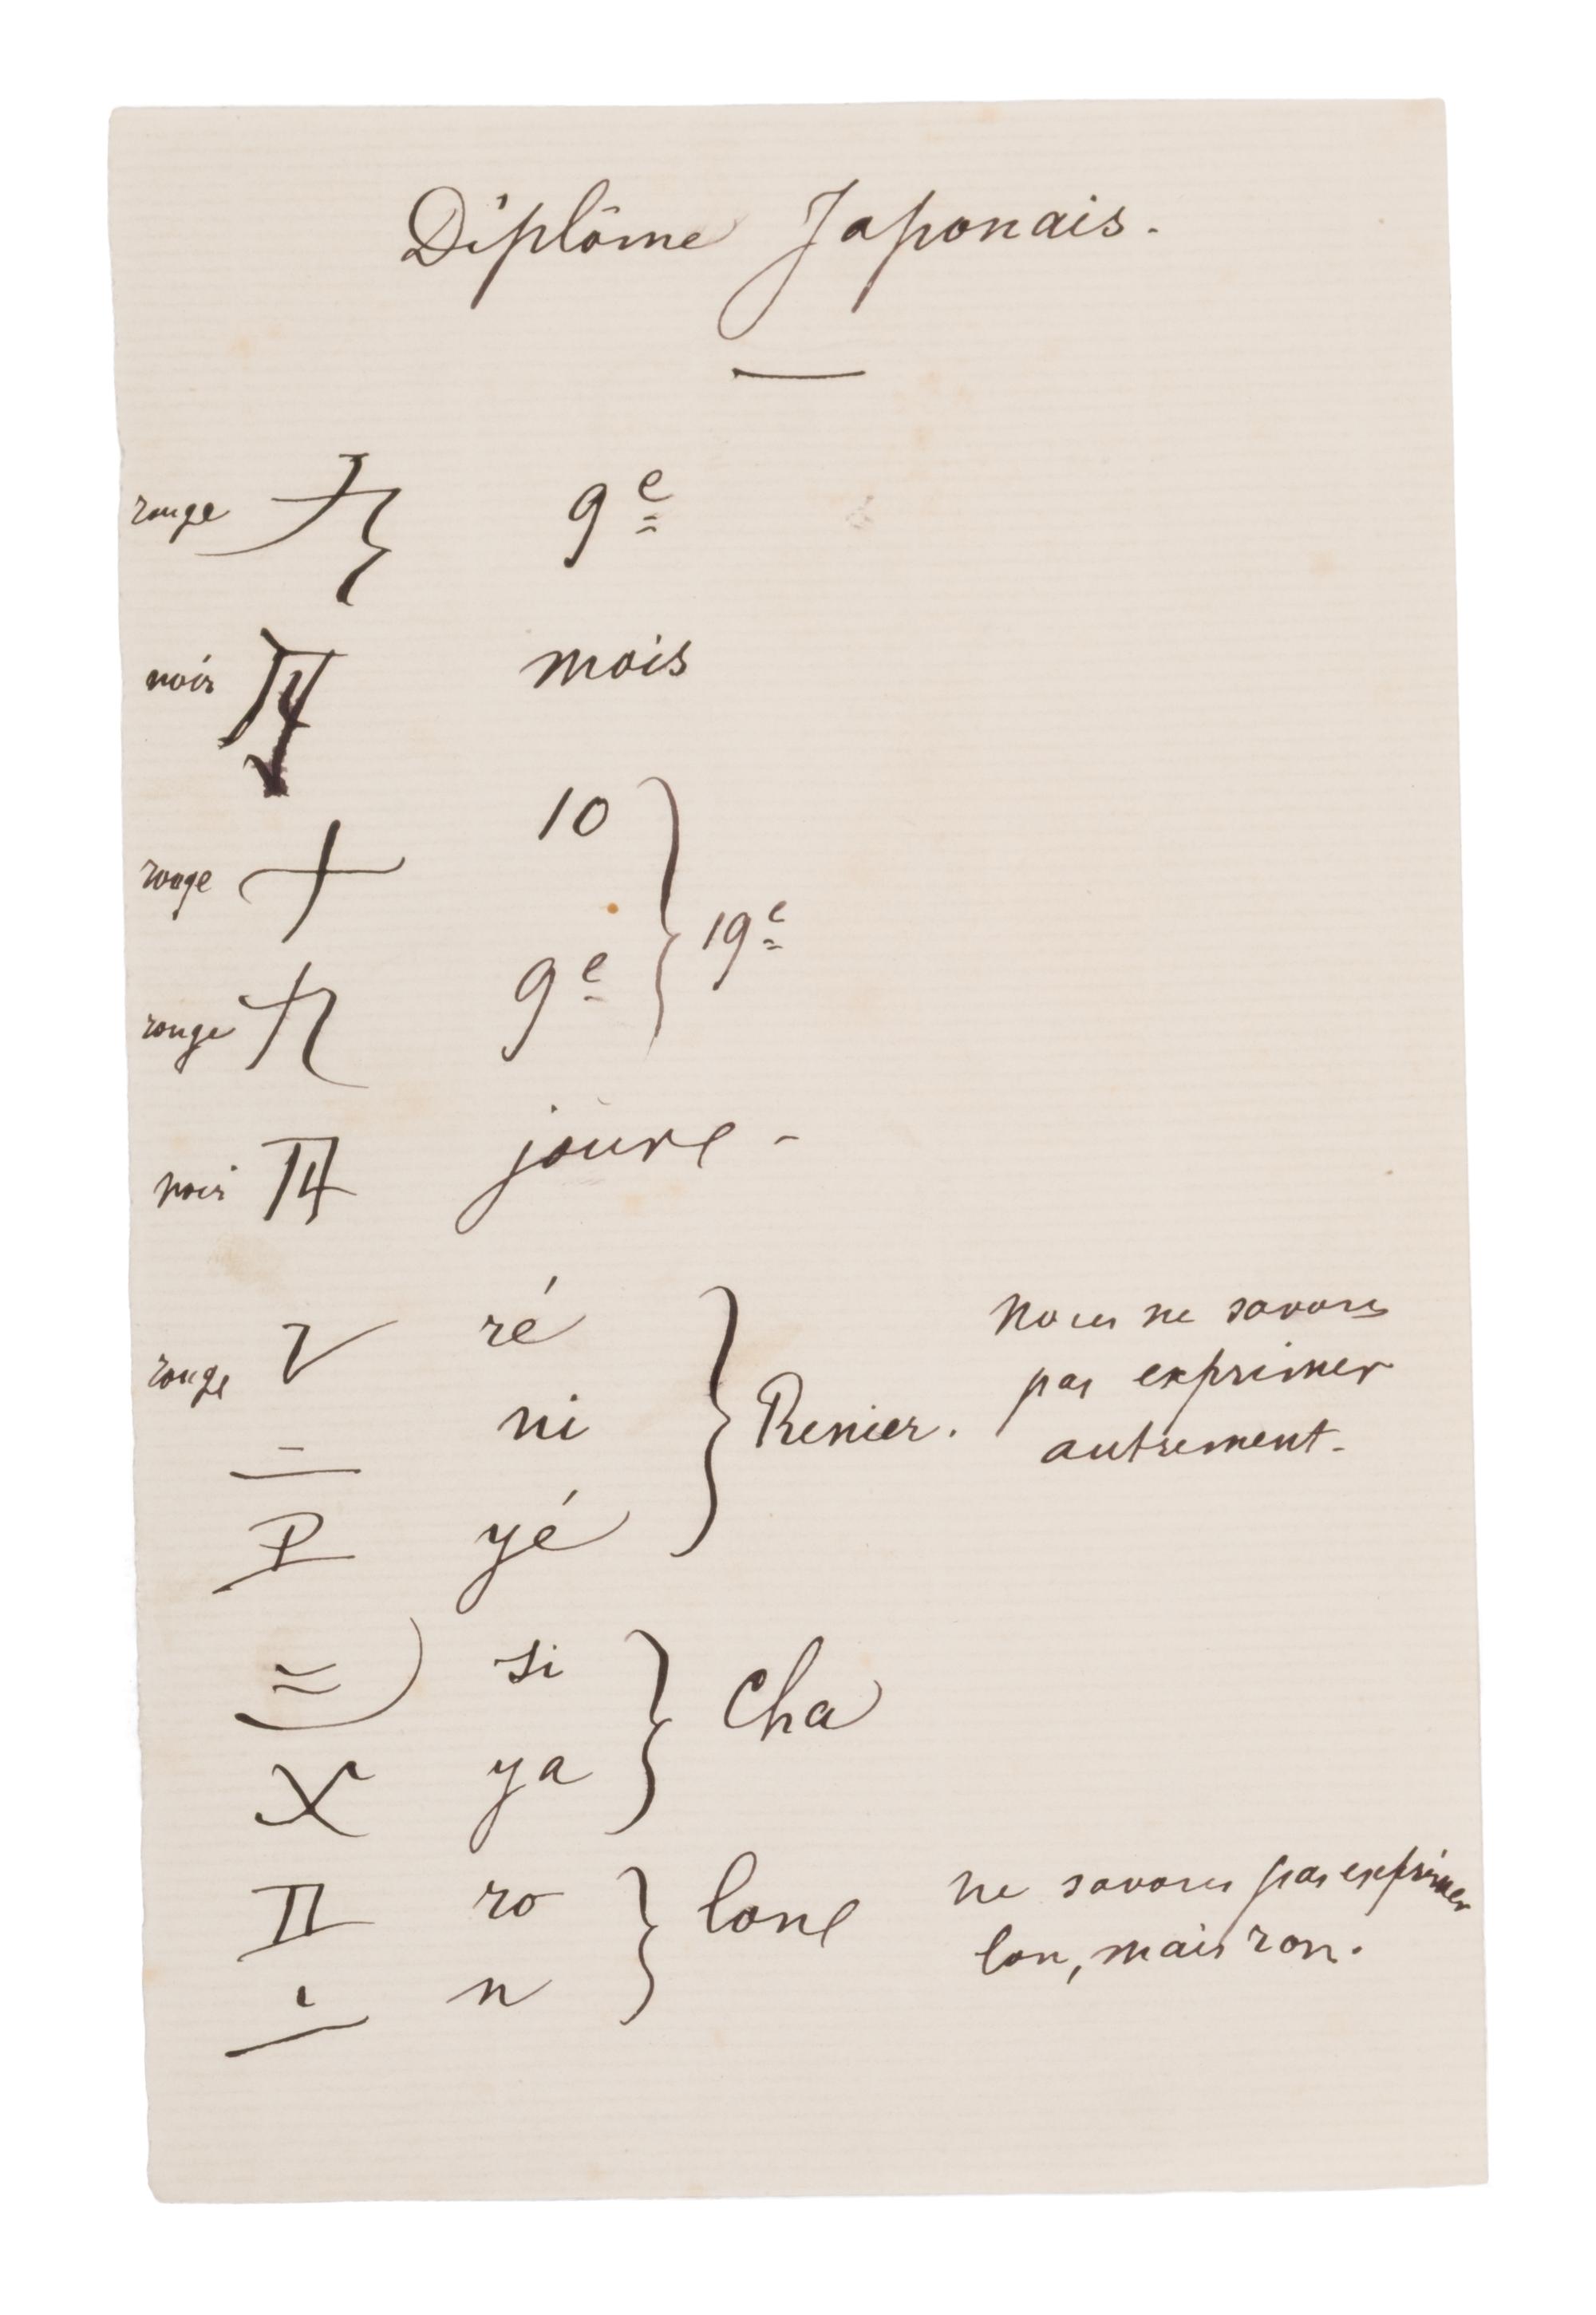 Diplôme Japonais.
rouge 九 9e
noir 月 mois
rouge 十 10
19e
rouge 九 9e
noir 日 jour -
rouge レ ré
ニ ni
Renier.
Nous ne savons
pas exprimer
autrement.
エ yé
シ si
Cha
ヤ ya
ロ ro
lon
ne savons pas exprimer
lon, mais ron.
ン n